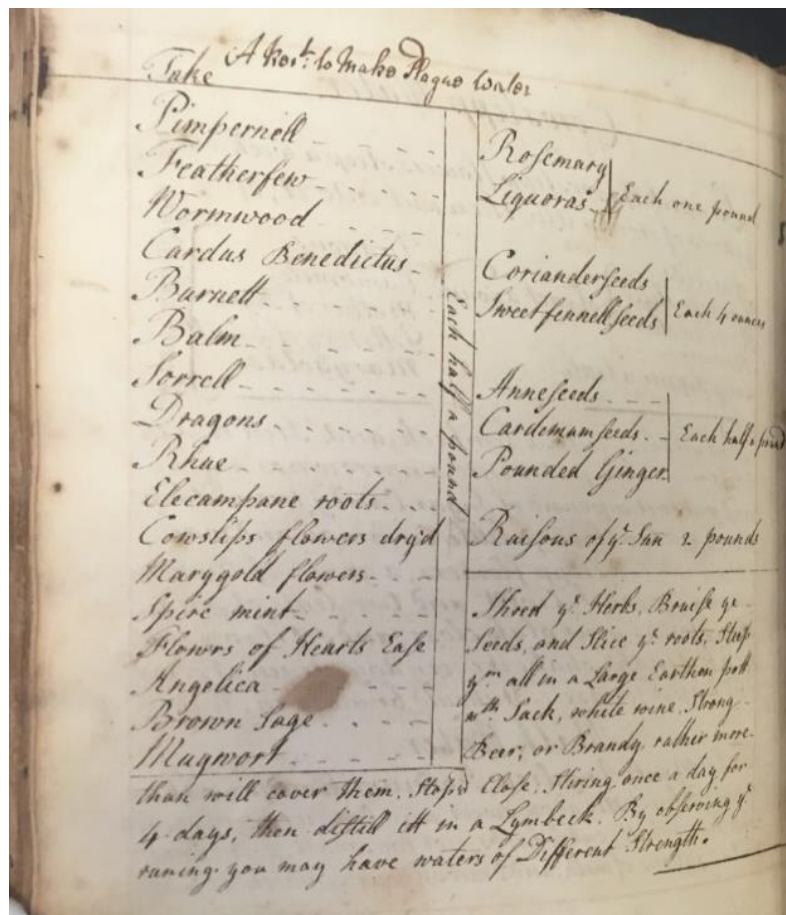 A Rect. to Make Plague Water
Take
Pimpernell
Featherfew
Wormwood
Cardus Benedictus
Burnett
Balm
Sorrell
Dragons
Rhue
Elecampane roots
Cowslips flowers dry'd
Marygold flowers
Spire mint
Flowrs of Hearts Ease
Angelica
Brown Sage
Mugwort
Each half a pound
Rosemary
Liquoras
Each one pound
Corianderseeds
Sweetfennellseeds
Each 4 ounces
Anneseeds
Cardemumseeds
Pounded Ginger
Each half a pound
Raisons of ye. Sun 2 pounds
Shred ye. Herbs, Bruise ye
Seeds, and Slice ye. roots, Steep
ym all in a Large Earthen pott
wth. Sack, white wine, Strong
Beer, or Brandy, rather more
than will cover them. Stop'd Close, Stiring once a day for
4 days, then distill itt in a Lymbeck. By observing ye.
runing you may have waters of Different Strength.